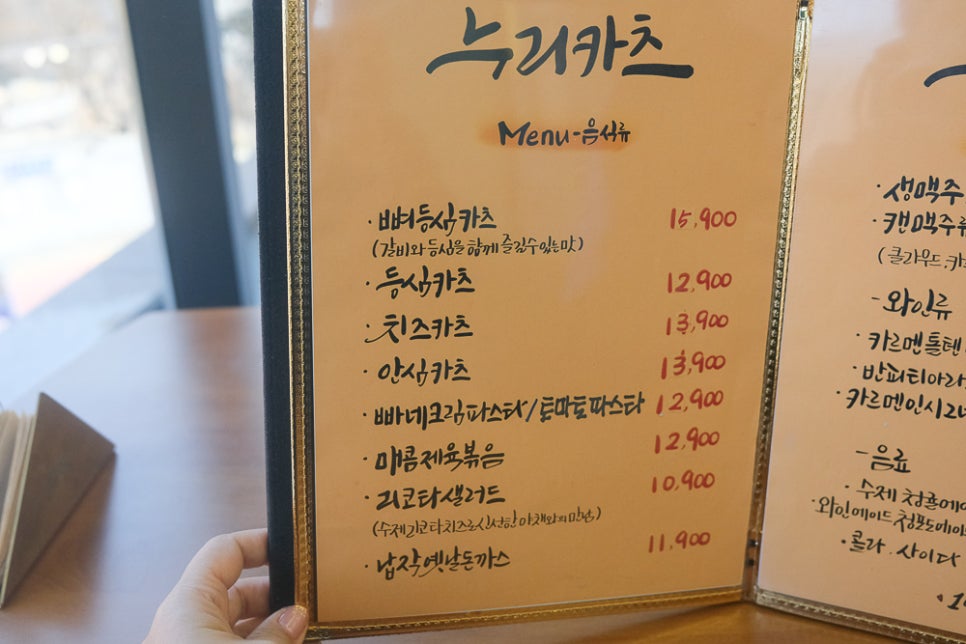 누리카츠
Menu-음식류
·뼈등심카츠 15,900
(갈비와 등심을 함께 즐길수있는맛)
·등심카츠 12,900
·치즈카츠 13,900
·안심카츠 13,900
·빠네크림파스타/토마토파스타 12,900
·매콤제육볶음 12,900
·리코타샐러드 10,900
(수제리코타치즈로신선한 야채와의만남)
·납작옛날돈까스 11,900
·생맥주
·캔맥주류
(클라우드,카
-와인류
·카르멘톨텐
·반피티아라
·카르멘인시그
-음료
·수제 청귤에이
·와인에이드 청포도에이드
·콜라.사이다